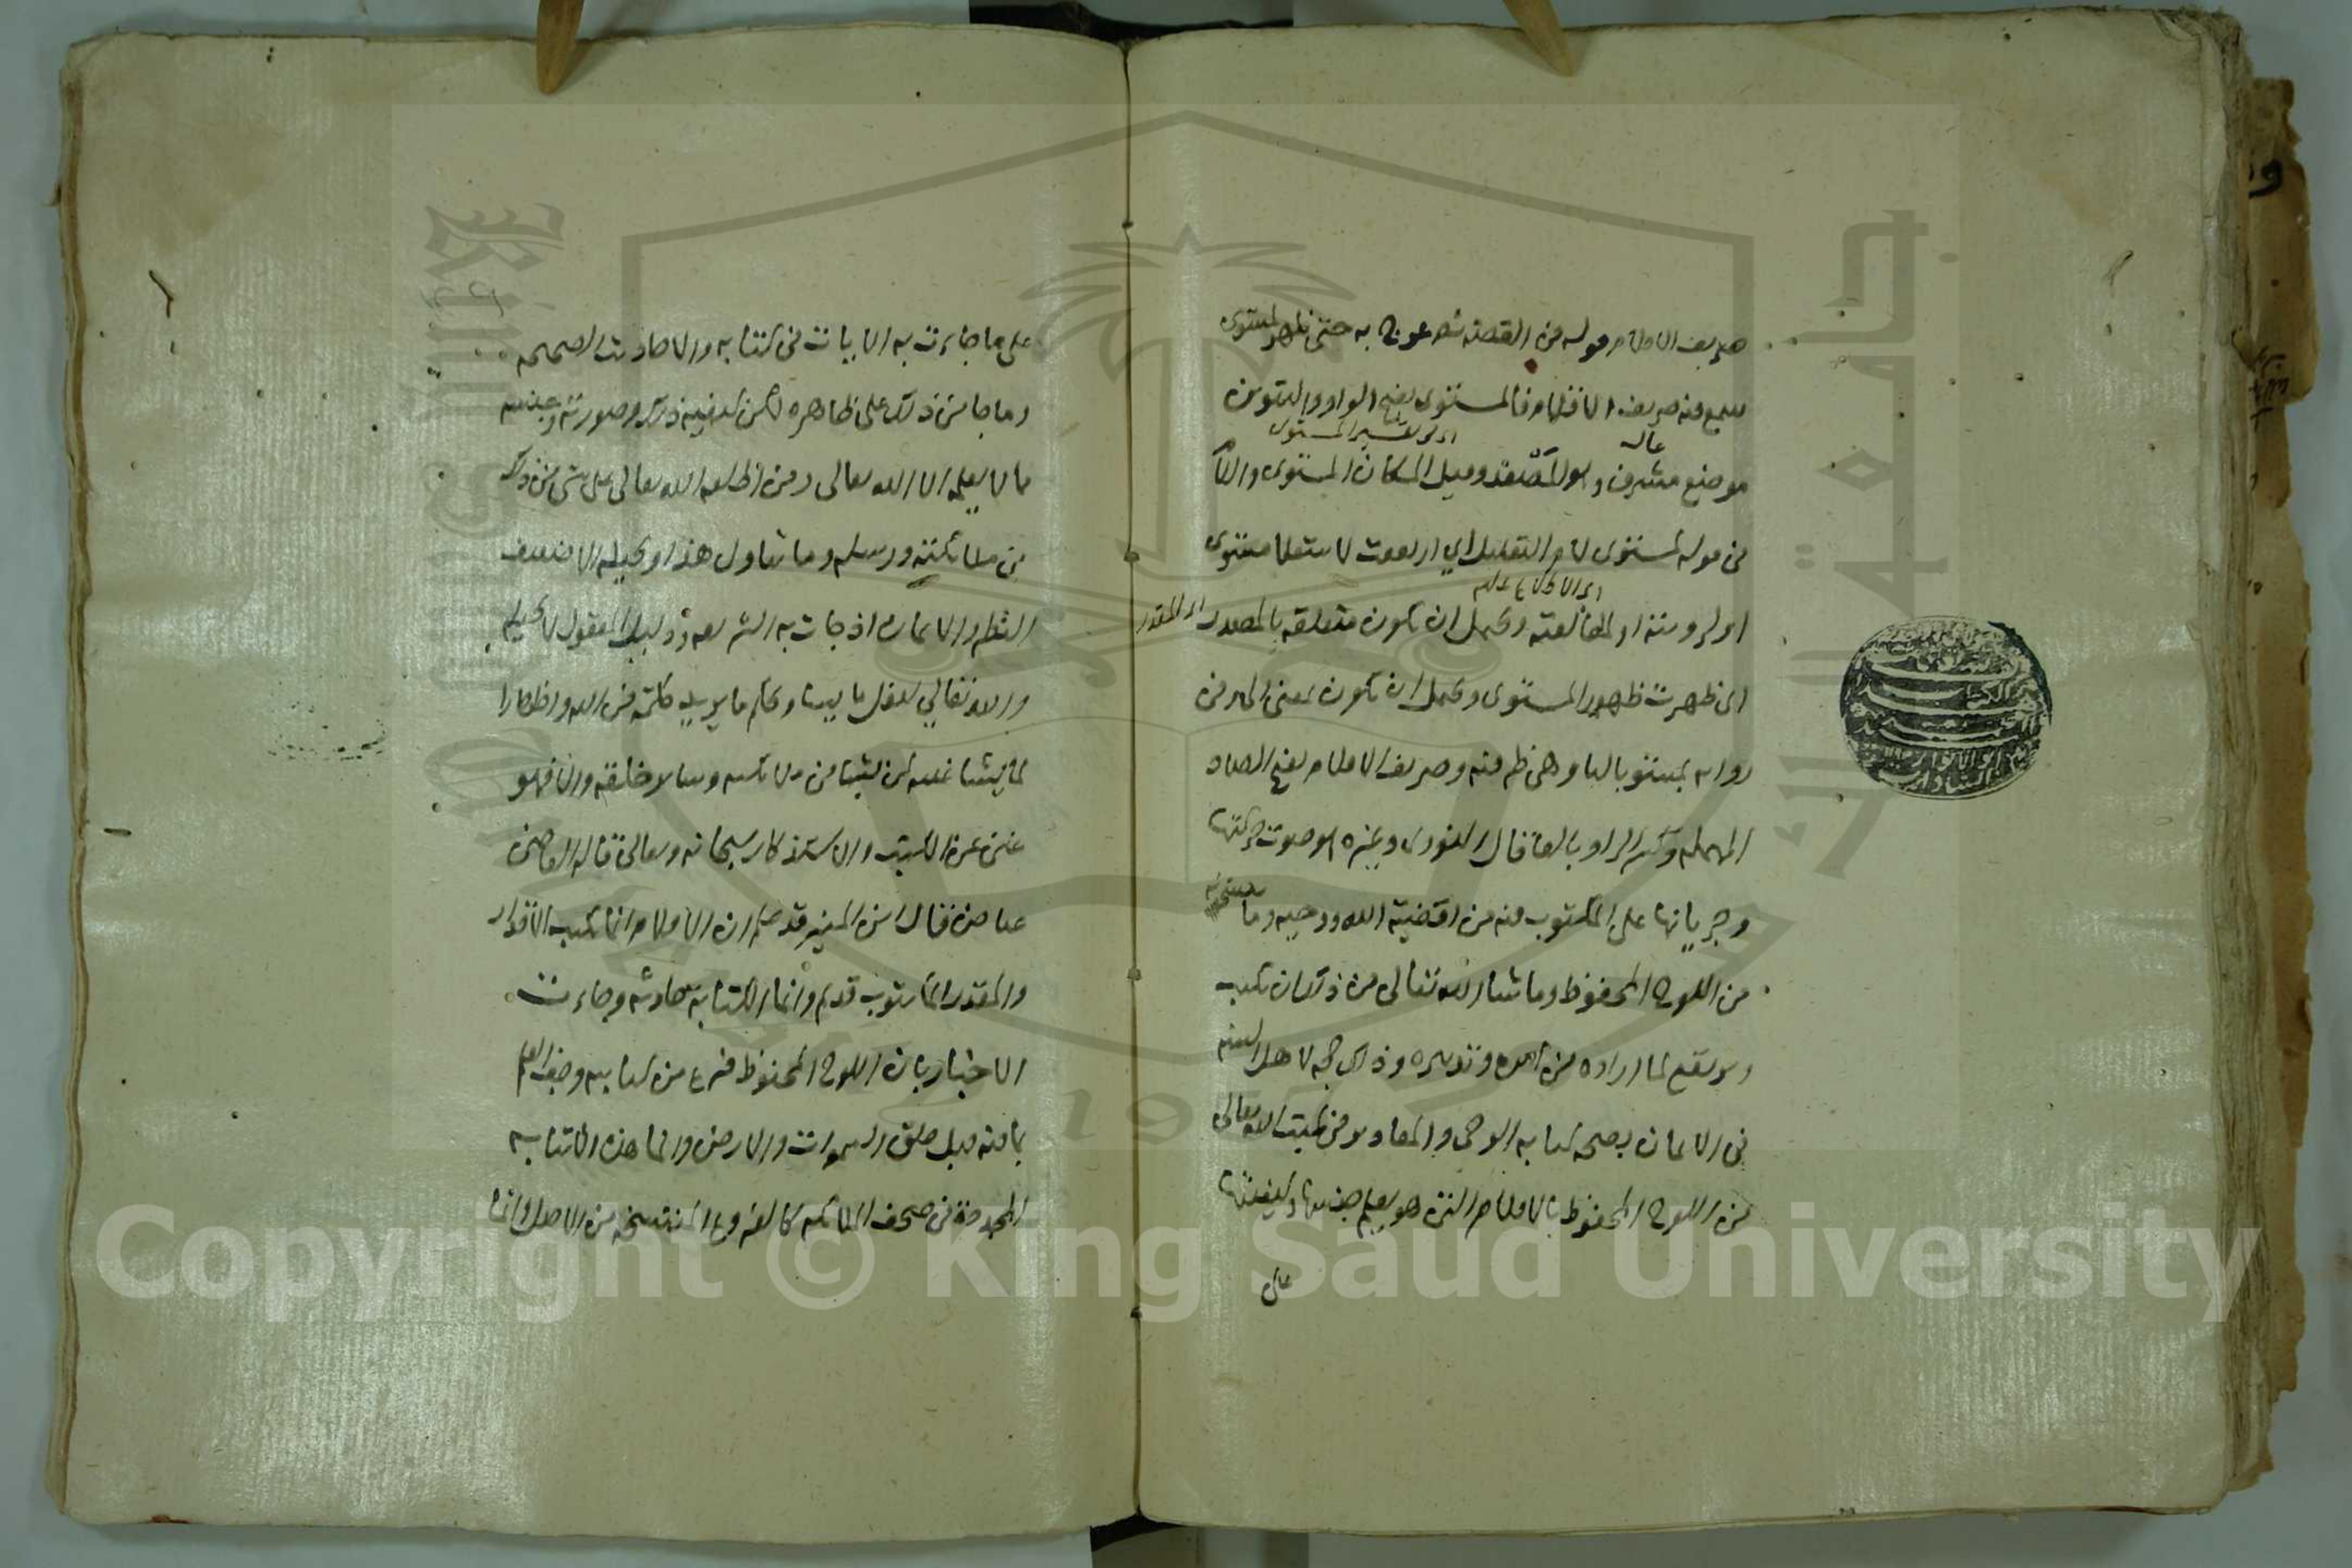 صريف الاقلام قوله في القصة ثم عرج به حتى ظهر لمستوى
سمع فيه صريف الاقلام فالمستوى بفتح الواو والتنوين
موضع مشرف عال وهو المصعد وقيل المكان المستوى واللام
في قوله لمستوى لام التعليل اي ارتفعت لاستعلا مستوى
او لرويته او لمطالعته ويحتمل ان تكون متعلقة بالمصدر
اى ظهرت ظهور المستوى ويحتمل ان تكون بمعنى الى وفي
رواية بمستوى بالبا وهي ظرفية وصريف الاقلام بفتح الصاد
المهملة وكسر الرا وبالفا قال النووى وغيره هو صوت حركتها
وجريانها على المكتوب فيه من اقضية الله ووحيه وما ينسخونه
من اللوح المحفوظ وما شا الله تعالى من ذلك ان يكتب
ويرفع لما اراده من امره وتدبيره وذلك حجة لاهل السنة
في الايمان بصحة كتابة الوحى والمقادير في كتب الله تعالى
من اللوح المحفوظ بالاقلام التي هو يعلم جنسها وكيفيتها
على
على ما جاءت به الايات في كتابه والاحاديث الصحيحة
وما جا من ذلك على ظاهره لكن كيفية ذلك وصورته وجنسه
مما لا يعلمه الا الله تعالى ومن اطلعه الله تعالى على شي من ذلك
من ملائكته ورسله وما يتاول هذا ويحيله الا ضعيف
النظر والايمان اذ جات به الشريعة ودليل المعقول لا يحيله
والله تعالى يفعل ما يشا ويحكم ما يريد حكمة من الله واظهارا
لما يشا من غيبه لمن يشا من ملائكته وساير خلقه والا فهو
غني عن الكتب والاستذكار سبحانه وتعالى قاله القاضي
عياض قال ابن المنير قد علم ان الاقلام انما تكتب الاقدار
والمقدر المكتوب قديم وانما الكتابة حادثة وجاءت
الاخبار بان اللوح المحفوظ فرغ من كتابته وجف القلم
بما فيه قبل خلق السموات والارض وانما هذه الكتابة
المحدثة في صحف الملائكة كالفروع المنتسخة من الاصل وانما